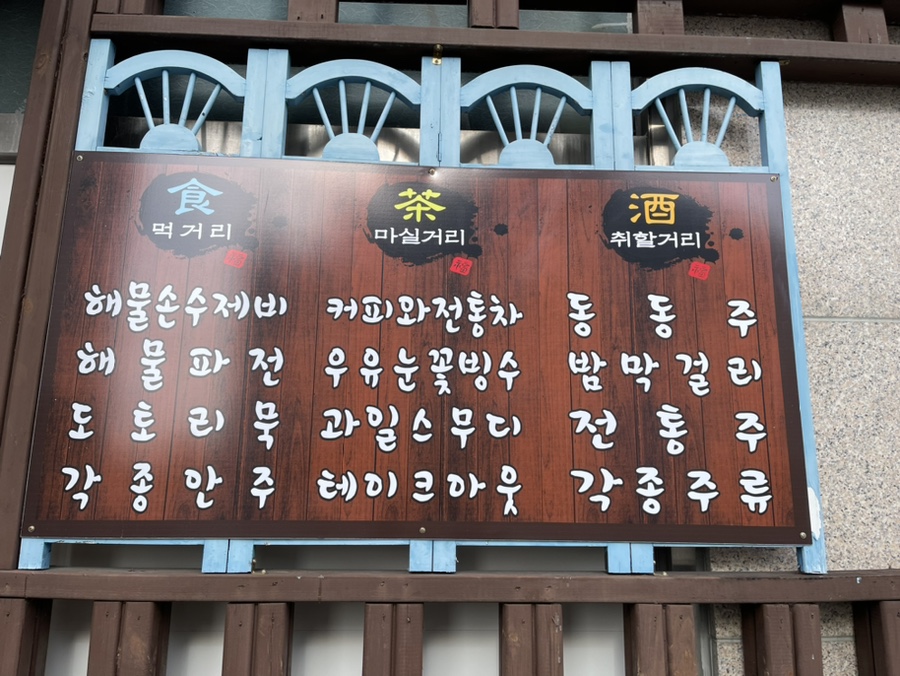 食
먹거리
해물손수제비
해물파전
도토리묵
각종안주
茶
마실거리
커피와전통차
우유눈꽃빙수
과일스무디
테이크아웃
酒
취할거리
동동주
밤막걸리
전통주
각종주류